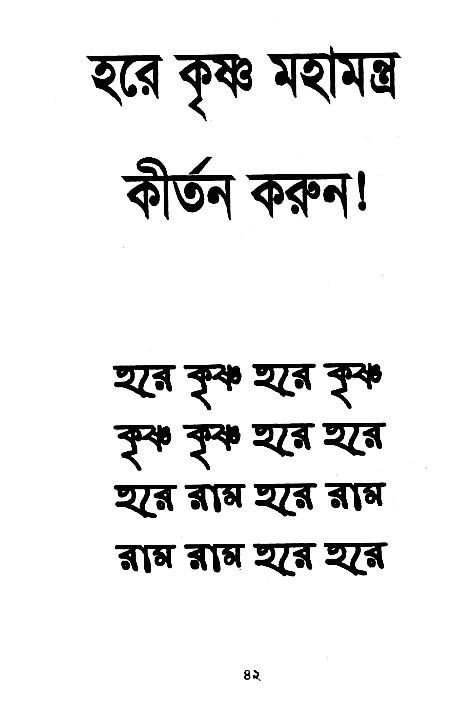 হরে কৃষ্ণ মহামন্ত্র
কীর্তন করুন!
হরে কৃষ্ণ হরে কৃষ্ণ
কৃষ্ণ কৃষ্ণ হরে হরে
হরে রাম হরে রাম
রাম রাম হরে হরে
৪২